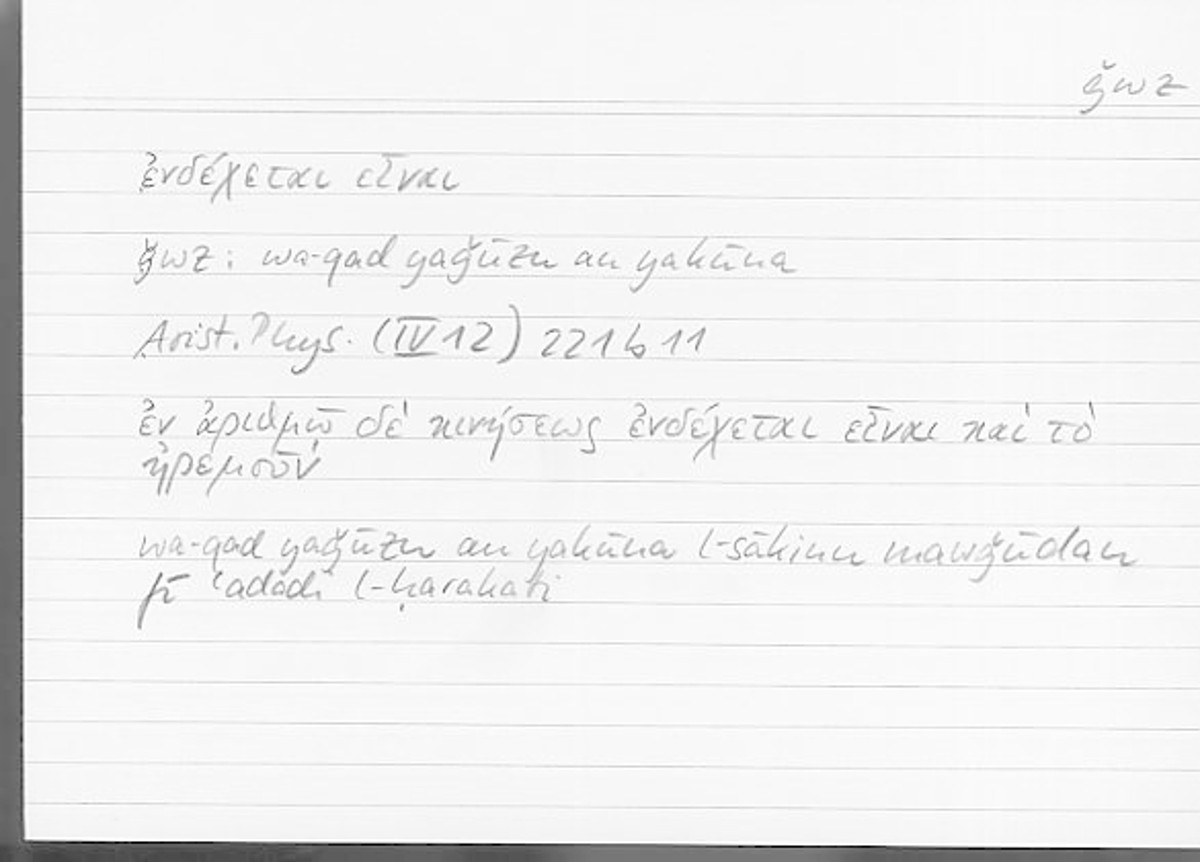 ǧwz
ἐνδέχεται εἶναι
ǧwz : wa-qad yaǧūzu an yakūna
Arist. Phys. (IV 12) 221b11
ἐν ἀριθμῷ δὲ κινήσεως ἐνδέχεται εἶναι καὶ τὸ
ἠρεμοῦν
wa-qad yaǧūzu an yakūna l-sākinu mawǧūdan
fī ʿadadi l-ḥarakati